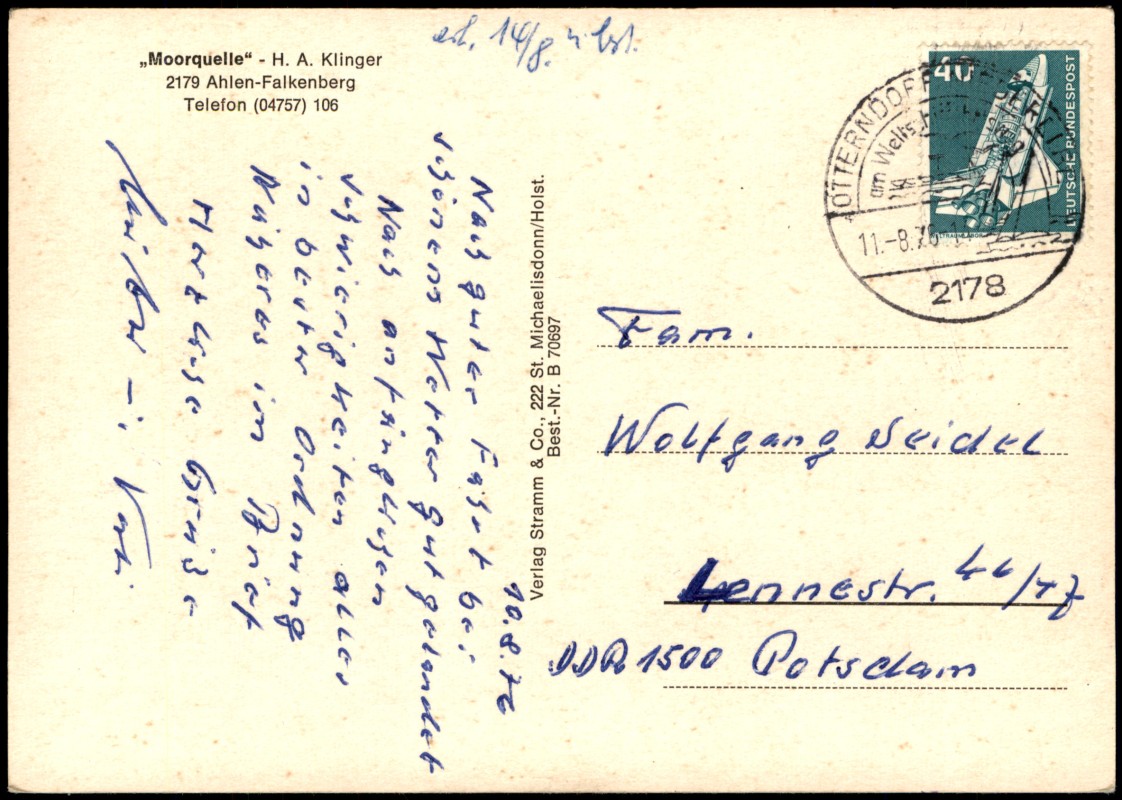 erh. 14/8.
„Moorquelle“ - H. A. Klinger
2179 Ahlen-Falkenberg
Telefon (04757) 106
40
DEUTSCHE BUNDESPOST
OTTERNDORF
am Welts
11.-8.76
2178
Verlag Stramm & Co., 222 St. Michaelisdonn/Holst.
Best.-Nr. B 70697
10.8.76
Nach guter Fahrt bei
schönem Wetter gut gelandet
Nach anfänglichen
Schwierigkeiten alles
in bester Ordnung
Näheres im Brief
Herzliche Grüße
Fam.
Wolfgang Seidel
Lennestr. 46/47
DDR 1500 Potsdam